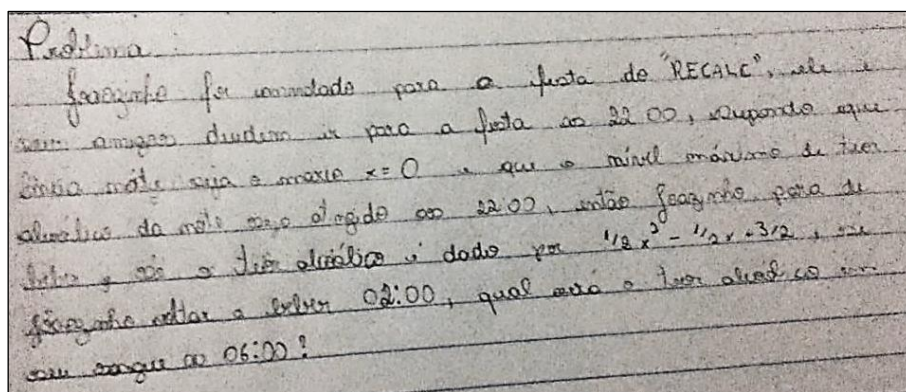 Problema
Joaozinho foi convidado para a festa do "RECALC", ele e
seus amigos decidem ir para a festa as 22:00, supondo que
meia noite seja o marco x=0 e que o nível máximo de teor
alcoólico da noite seja atingido as 22:00, então Joaozinho para de
beber e o teor alcoólico é dado por 1/8 x² - 1/2 x + 3/2, se
Joaozinho voltar a beber 02:00, qual será o teor alcoólico em
seu sangue as 06:00?